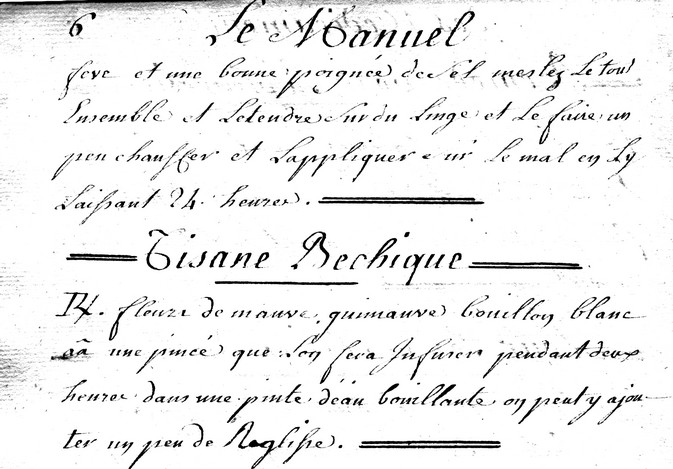 6 Le Manuel
feve et une bonne poignée de Sel meslez Le tout
Ensemble et Letendre Sur du Linge et Le faire un
peu chauffer et Lappliquer sur Le mal en Ly
Laissant 24. heures.
Tisane Bechique
R. fleurs de mauve, guimauve bouillon blanc
aã une pincé que Lon fera Infuser pendant deux
heures dans une pinte d'éau bouillante on peut y ajou-
ter un peu de Reglisse.